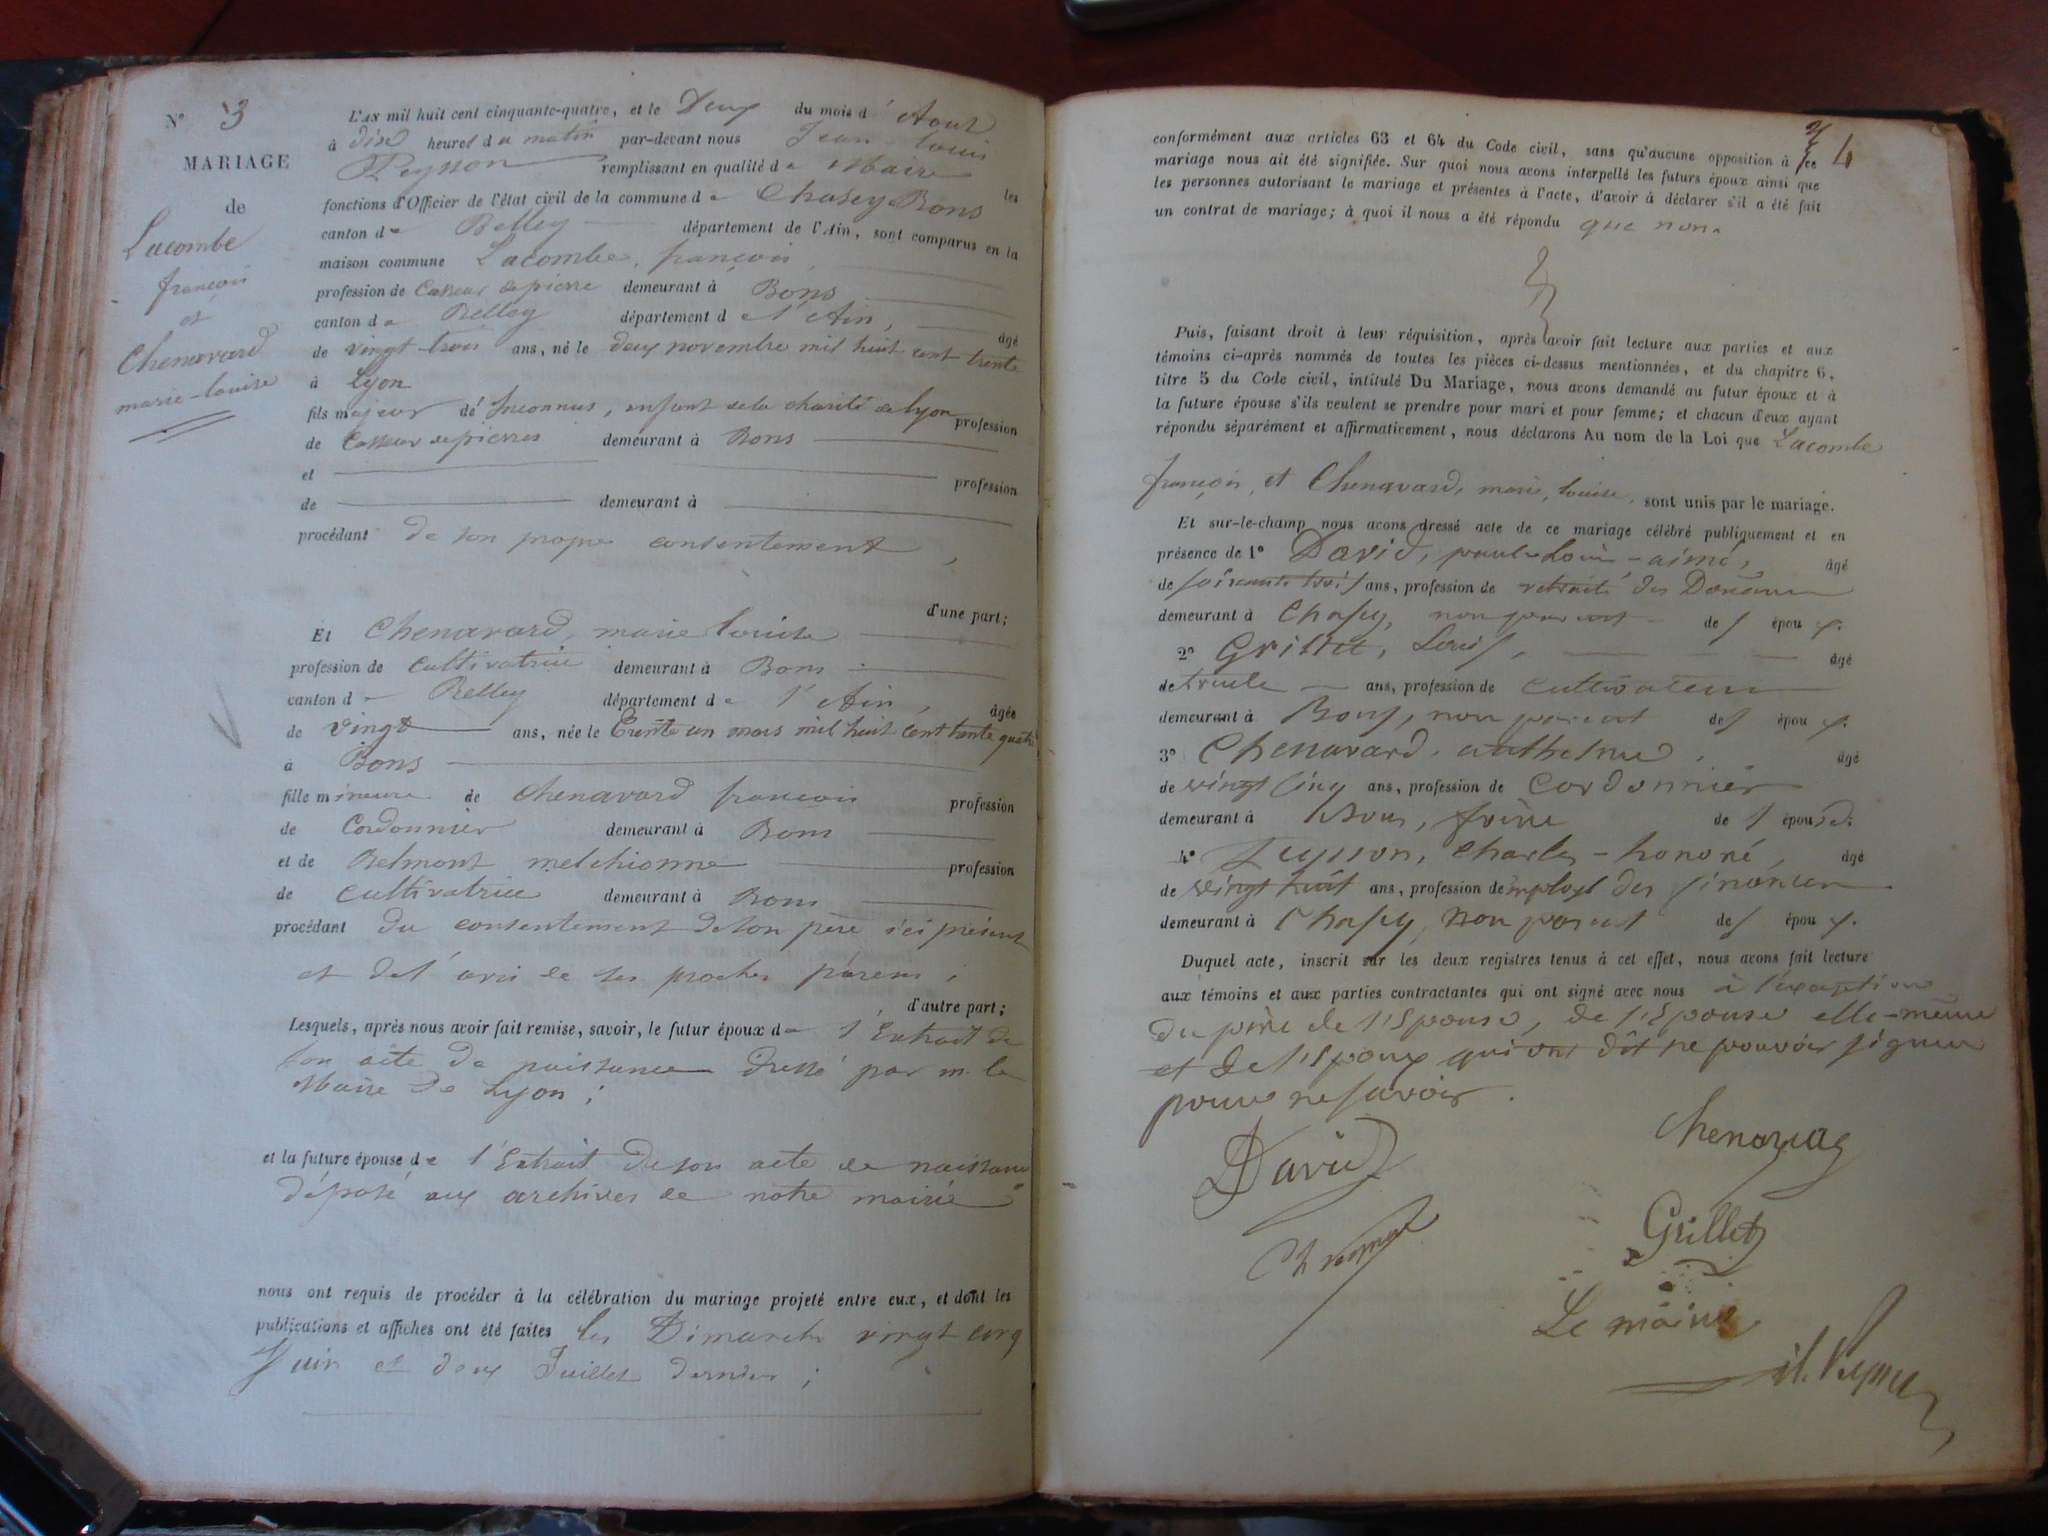 N° 3
MARIAGE
de
Lacombe
françois
et
Chenavard
marie-louise
L'AN mil huit cent cinquante-quatre, et le Deux du mois d'Aout
à dix heures du matin par-devant nous Jean louis
Peysson remplissant en qualité de Maire les
fonctions d'Officier de l'état civil de la commune de Chasey Bons
canton de Belley département de l'Ain, sont comparus en la
maison commune Lacombe, françois,
profession de Casseur de pierre demeurant à Bons
canton de Belley département de l'Ain, âgé
de vingt-trois ans, né le deux novembre mil huit cent trente
à Lyon
fils majeur de Inconnus, enfant de la charité de lyon profession
de Casseur de pierres demeurant à Bons
et profession
de demeurant à
procédant de son propre consentement,
d'une part;
Et Chenavard, marie louise
profession de Cultivatrice demeurant à Bons
canton de Belley département de l'Ain, âgée
de vingt ans, née le Trente un mars mil huit cent trente quatre
à Bons
fille mineure de Chenavard françois profession
de Cordonnier demeurant à Bons
et de Belmont melchionne profession
de Cultivatrice demeurant à Bons
procédant du consentement de son père ici présent
et de l'avis de ses proches parens;
d'autre part;
Lesquels, après nous avoir fait remise, savoir, le futur époux de l'Extrait de
son acte de naissance dressé par m. le
Maire de Lyon;
et la future épouse de l'Extrait de son acte de naissance
déposé aux archives de notre mairie
nous ont requis de procéder à la célébration du mariage projeté entre eux, et dont les
publications et affiches ont été faites les Dimanche vingt cinq
Juin et deux Juillet dernier;
4
conformément aux articles 63 et 64 du Code civil, sans qu'aucune opposition à ce
mariage nous ait été signifiée. Sur quoi nous avons interpellé les futurs époux ainsi que
les personnes autorisant le mariage et présentes à l'acte, d'avoir à déclarer s'il a été fait
un contrat de mariage; à quoi il nous a été répondu que non.
Puis, faisant droit à leur réquisition, après avoir fait lecture aux parties et aux
témoins ci-après nommés de toutes les pièces ci-dessus mentionnées, et du chapitre 6,
titre 5 du Code civil, intitulé Du Mariage, nous avons demandé au futur époux et à
la future épouse s'ils veulent se prendre pour mari et pour femme; et chacun d'eux ayant
répondu séparément et affirmativement, nous déclarons Au nom de la Loi que Lacombe
françois, et Chenavard, marie, louise, sont unis par le mariage.
Et sur-le-champ nous avons dressé acte de ce mariage célébré publiquement et en
présence de 1° David, Louis-aimé, âgé
de soixante trois ans, profession de retraité des Douanes
demeurant à Chasey, non parent des époux.
2° Grillet, Louis, âgé
de trente ans, profession de cultivateur
demeurant à Bons, non parent des époux.
3° Chenavard, anthelme, âgé
de vingt cinq ans, profession de Cordonnier
demeurant à Bons, frère de l'épouse.
4° Peysson, Charles-honoré, âgé
de vingt huit ans, profession de employé des finances
demeurant à Chasey, non parent des époux.
Duquel acte, inscrit sur les deux registres tenus à cet effet, nous avons fait lecture
aux témoins et aux parties contractantes qui ont signé avec nous à l'exception
du père de l'Epouse, de l'Epouse elle-même
et de l'Epoux qui ont dit ne pouvoir signer
pour ne savoir.
David
Grillet
Le maire